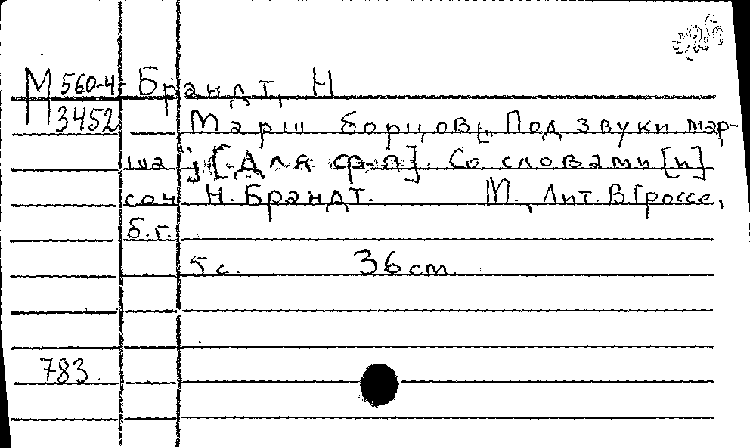 М 560-4 Брандт, Н
3452 Марш борцов [. Под звуки мар-
ша ] [Для ф-п]. Со словами [и]
соч Н. Брандт. М., Лит. В Гроссе,
б.г.
5 с. 36 cm.
783